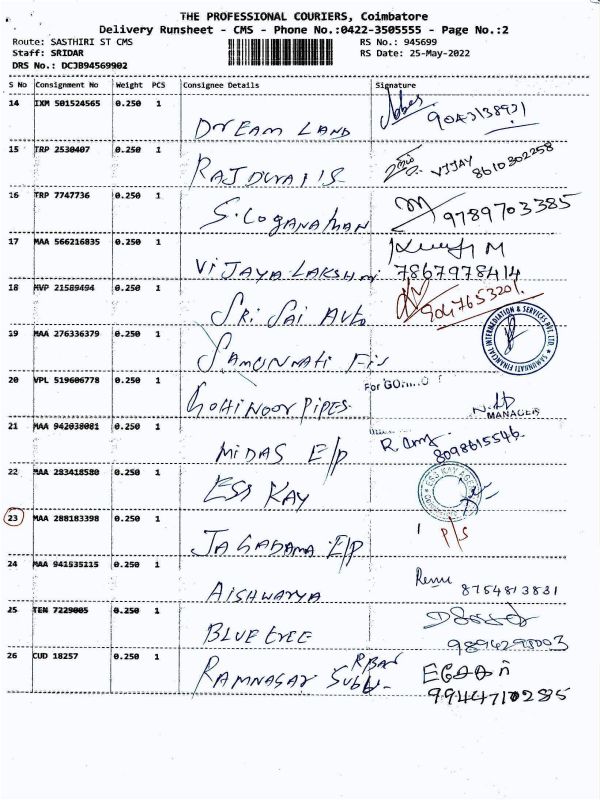 THE PROFESSIONAL COURIERS, Coimbatore
Delivery Runsheet - CMS - Phone No.:0422-3505555 - Page No.:2
Route: SASTHIRI ST CMS RS No.: 945699
Staff: SRIDAR RS Date: 25-May-2022
DRS No.: DCJB94569902
S No Consignment No Weight PCS Consignee Details Signature
14 IXM 501524565 0.250 1 DREAM LAND 9043138931
15 TRP 2530407 0.250 1 VIJAY 8610302258
16 TRP 7747736 0.250 1 S. Loganathan 9789703385
17 MAA 566216835 0.250 1 VIJAYA LAKSHmi 7867978414
18 MVP 21589494 0.250 1 SRI SAI AUto 9047653201.
19 MAA 276336379 0.250 1 SAMUNNATI Fin SAMUNNATI FINANCIAL INTERMEDIATION & SERVICES PVT. LTD
20 VPL 519606778 0.250 1 GOHINOOR PIPES For MANAGER
21 MAA 942038081 0.250 1 MIDAS E/P 8098615546.
22 MAA 283418580 0.250 1 ESS KAY ESS KAY
23 MAA 288183398 0.250 1 JAGADAMA E/P P/S
24 MAA 941535115 0.250 1 AISHWARYA Renu 8754813831
25 TEN 7229005 0.250 1 BLUE tREE
26 CUD 18257 0.250 1 RAMNAGAR 9944710285